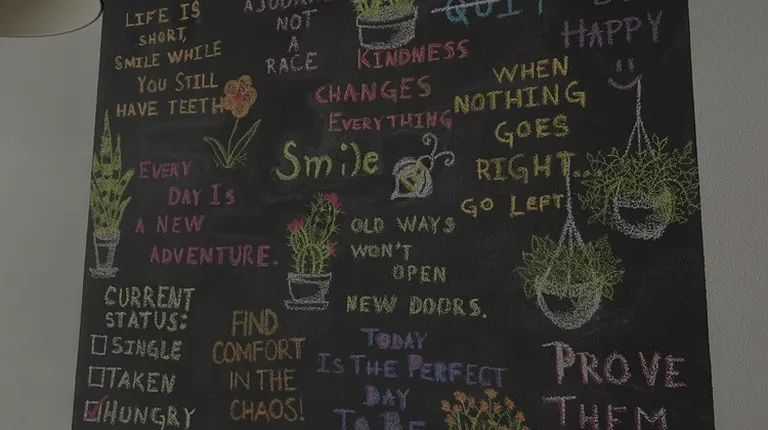 LIFE IS
SHORT,
SMILE WHILE
YOU STILL
HAVE TEETH
NOT
A
RACE
KINDNESS
CHANGES
EVERYTHING
QUIT
HAPPY
WHEN
NOTHING
GOES
RIGHT...
GO LEFT
Smile
EVERY
DAY IS
A NEW
ADVENTURE.
OLD WAYS
WON'T
OPEN
NEW DOORS.
CURRENT
STATUS:
SINGLE
TAKEN
HUNGRY
FIND
COMFORT
IN THE
CHAOS!
TODAY
IS THE PERFECT
DAY
TO BE
PROVE
THEM